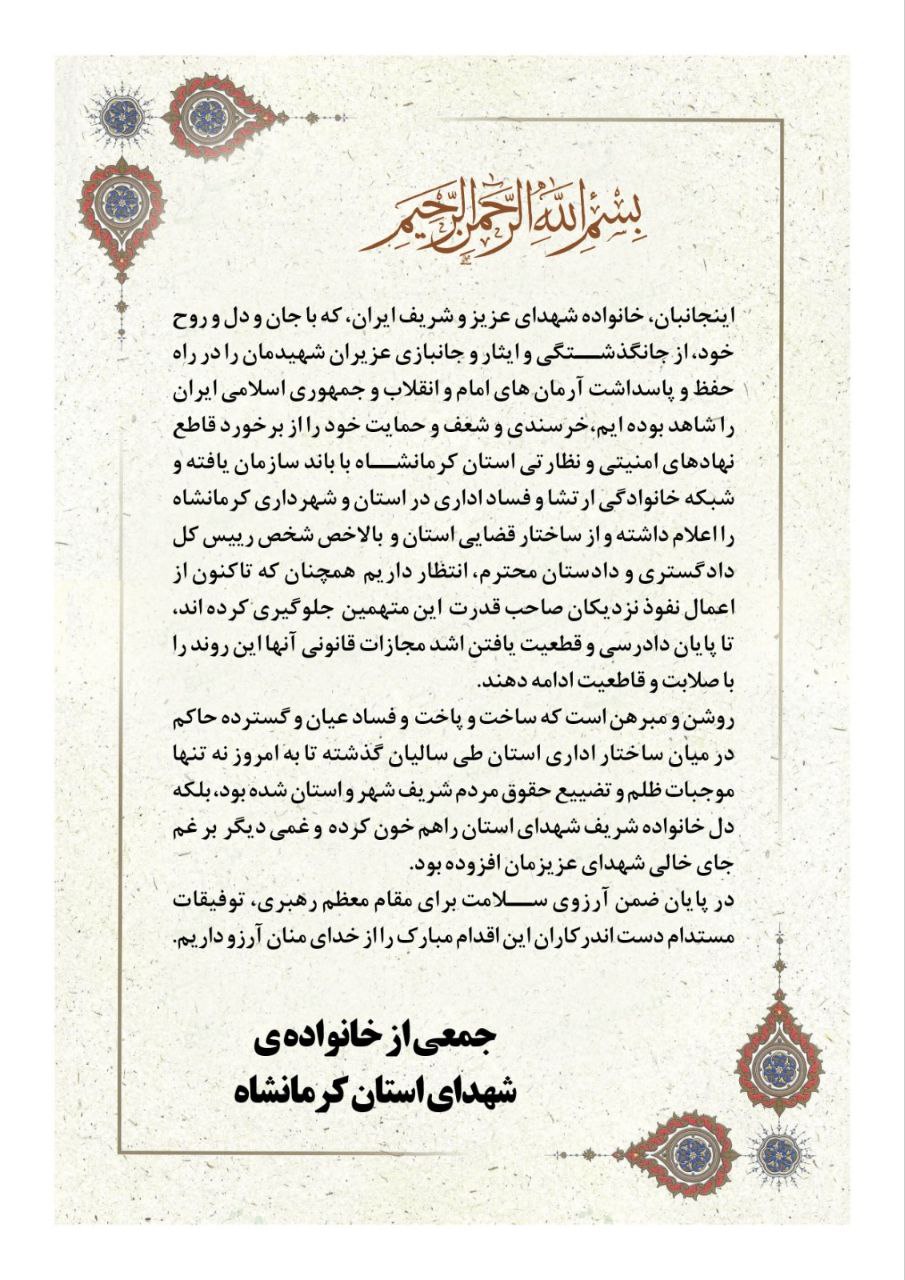 بِسْمِ اللَّهِ الرَّحْمَنِ الرَّحِيمِ
اینجانبان، خانواده شهدای عزیز و شریف ایران، که با جان و دل و روح
خود، از جانگذشــتگی و ایثار و جانبازی عزیران شهیدمان را در راه
حفظ و پاسداشت آرمان های امام و انقلاب و جمهوری اسلامی ایران
را شاهد بوده ایم،خرسندی و شعف و حمایت خود را از برخورد قاطع
نهادهای امنیتی و نظارتی استان کرمانشــاه با باند سازمان یافته و
شبکه خانوادگی ارتشا و فساد اداری در استان و شهرداری کرمانشاه
را اعلام داشته و از ساختار قضایی استان و بالاخص شخص رییس کل
دادگستری و دادستان محترم، انتظار داریم همچنان که تاکنون از
اعمال نفوذ نزدیکان صاحب قدرت این متهمین جلوگیری کرده اند،
تا پایان دادرسی و قطعیت یافتن اشد مجازات قانونی آنها این روند را
با صلابت و قاطعیت ادامه دهند.
روشن و مبرهن است که ساخت و پاخت و فساد عیان و گسترده حاکم
در میان ساختار اداری استان طی سالیان گذشته تا به امروز نه تنها
موجبات ظلم و تضییع حقوق مردم شریف شهر و استان شده بود، بلکه
دل خانواده شریف شهدای استان راهم خون کرده و غمی دیگر بر غم
جای خالی شهدای عزیزمان افزوده بود.
در پایان ضمن آرزوی ســلامت برای مقام معظم رهبری، توفیقات
مستدام دست اندرکاران این اقدام مبارک را از خدای منان آرزو داریم.
جمعی از خانواده‌ی
شهدای استان کرمانشاه